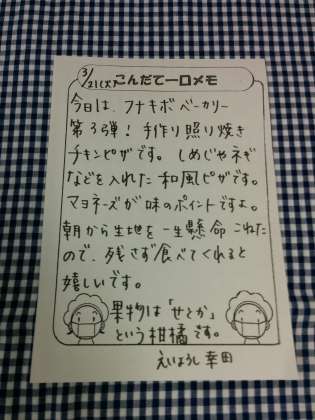 3/21(火)こんだて一口メモ
今日は、フナキボベーカリー
第3弾！手作り照り焼き
チキンピザです。しめじやネギ
などを入れた和風ピザです。
マヨネーズが味のポイントですよ。
朝から生地を一生懸命こねた
ので、残さず食べてくれると
嬉しいです。
果物は「せとか」
という柑橘です。
えいようし 幸田